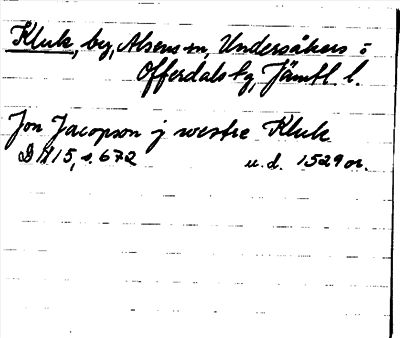 Kluk, by, Alsens sn, Undersåkers o
Offerdals tg, Jämtl l.
Jon Jacopson j westre Kluk
DN 15, s. 672 u.d. 1529 or.